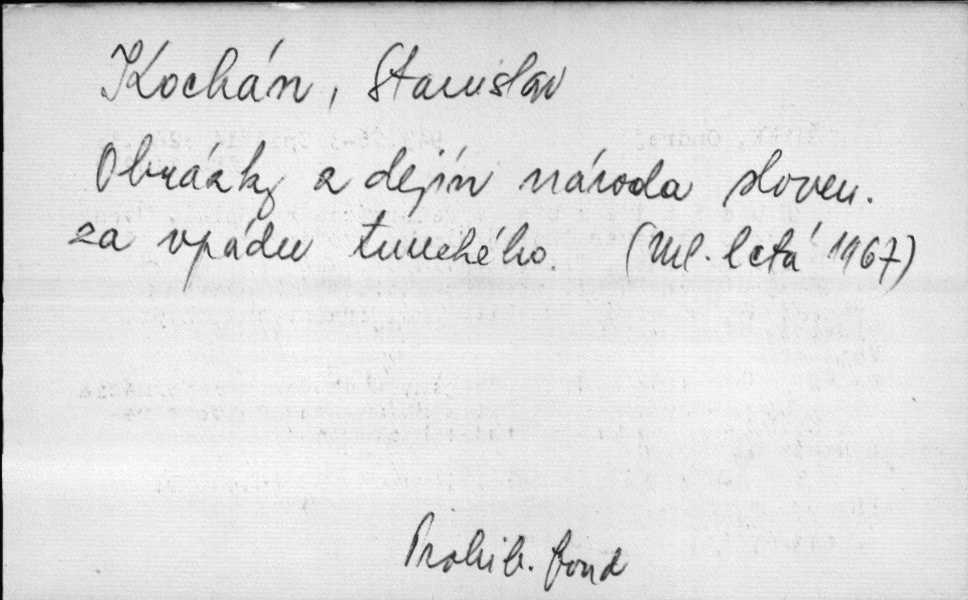 Kochán, Stanislav
Obrázky z dejín národa sloven.
za vpádu tureckého. (Ml. letá 1967)
Prohib. fond